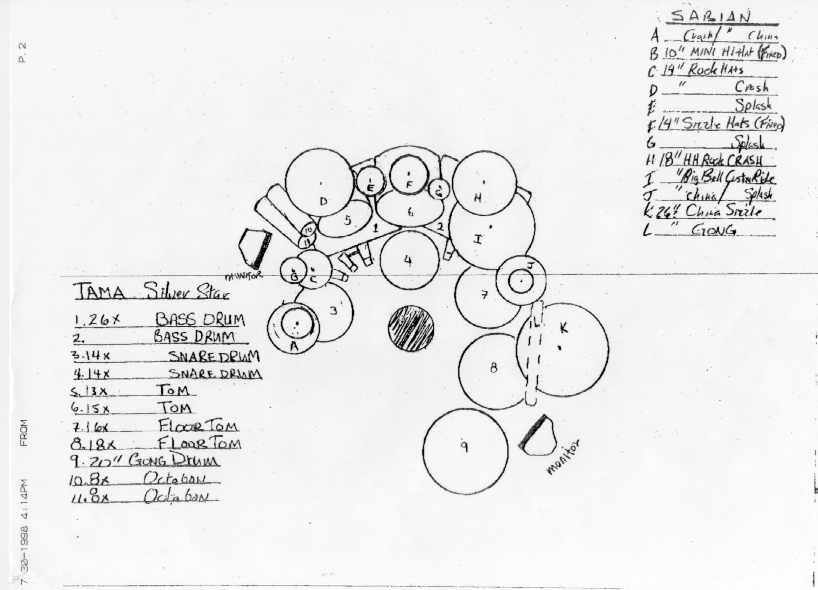 P.2
SABIAN
A Crash/ " China
B 10" MINI Hi-Hat (Fixed)
C 14" Rock Hats
D " Crash
E Splash
F 14" Sizzle Hats (Fixed)
G Splash
H 18" HH Rock CRASH
I "Big Bell Custom Ride
J " china/ Splash
K 26" China Sizzle
L " GONG
D
E
F
G
H
5
6
10
11
1
2
I
4
monitor
B
C
J
7
3
A
K
8
9
monitor
TAMA Silver Star
1. 26x BASS DRUM
2. BASS DRUM
3. 14x SNARE DRUM
4. 14x SNARE DRUM
5. 13x TOM
6. 15x TOM
7. 16x FLOOR TOM
8. 18x FLOOR TOM
9. 20" GONG DRUM
10. 8x Octaban
11. 8x Octaban
7-30-1998 4:14PM FROM